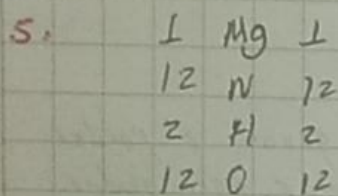 5. I Mg I
12 N 12
2 H 2
12 O 12